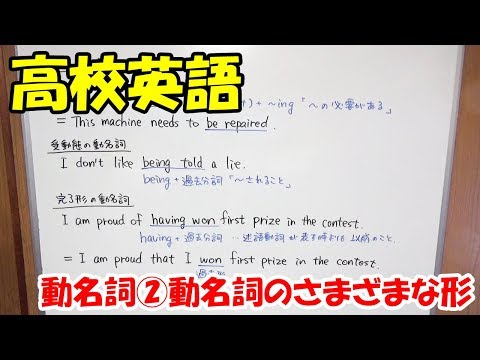 高校英語
) + ~ing 「~の必要がある」
= This machine needs to be repaired.
受動態の動名詞
I don't like being told a lie.
being + 過去分詞 「~されること」
完了形の動名詞
I am proud of having won first prize in the contest.
having + 過去分詞 … 述語動詞が表す時よりも以前のこと.
= I am proud that I won first prize in the contest.
動名詞②動名詞のさまざまな形